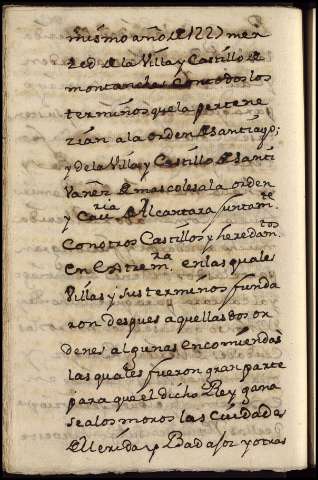 mismo año de 1227 mer
zed de la Villa y Castillo de
montanches Con todos los
terminos que la pertene
zian a la orden de Santiago;
y de la Villa y Castillo de Santi
Vañez de mascoles a la orden
y Cauria de Alcantara juntamte
Con otros Castillos y heredamtos
en Extremra. en las quales
Villas y sus terminos funda
ron despues aquellas dos or
denes algunas encomiendas
las quales fueron gran parte
para que el dicho Rey gana
se a los moros las Ciudades
de Merida y Badajoz y otras